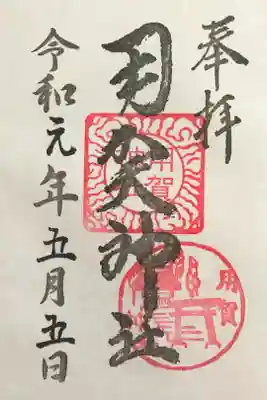 奉拝
用賀神社
令和元年五月五日
用賀